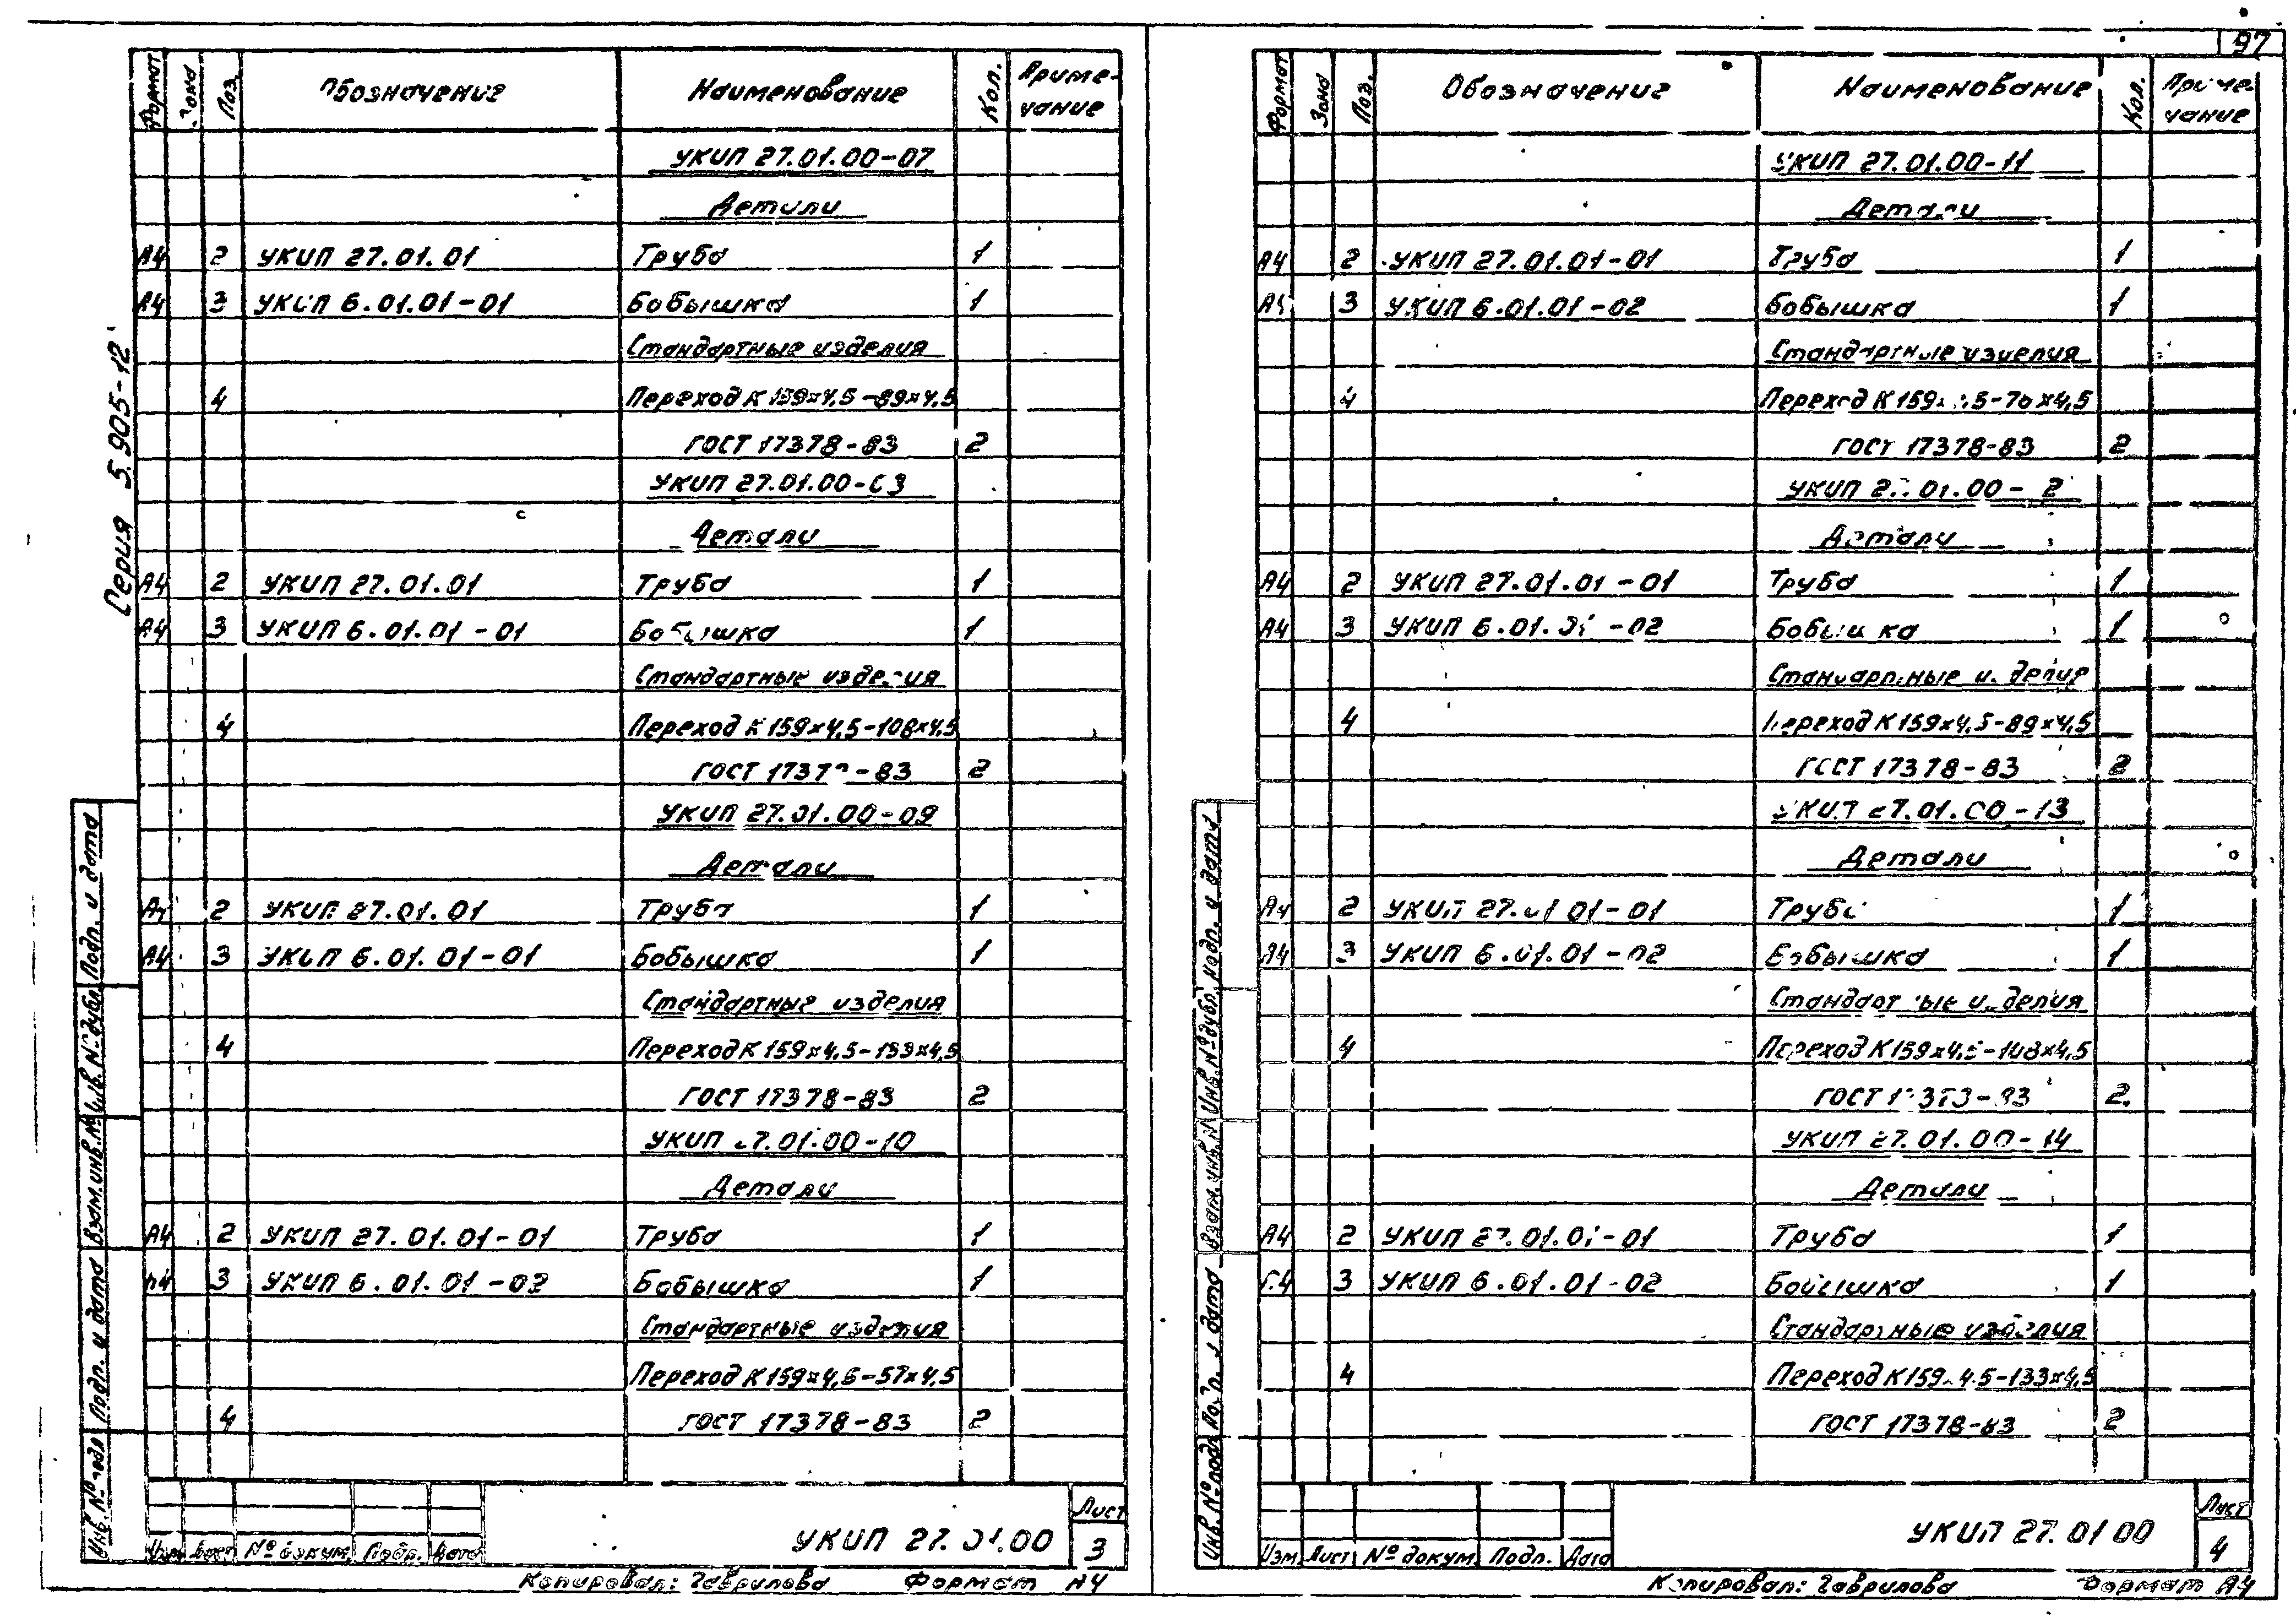 97
Серия 5.905-12
Формат Зона Поз. Обозначение Наименование Кол. Приме-
чание
УКИП 27.01.00-07
Детали
А4 2 УКИП 27.01.01 Труба 1
А4 3 УКИП 6.01.01-01 Бобышка 1
Стандартные изделия
4 Переход К 159×4,5-89×4,5
ГОСТ 17378-83 2
УКИП 27.01.00-
Детали
А4 2 УКИП 27.01.01 Труба 1
А4 3 УКИП 6.01.01-01 Бобышка 1
Стандартные изделия
4 Переход К 159×4,5-108×4,5
ГОСТ 17378-83 2
УКИП 27.01.00-09
Детали
А4 2 УКИП 27.01.01 Труба 1
А4 3 УКИП 6.01.01-01 Бобышка 1
Стандартные изделия
4 Переход К 159×4,5-133×4,5
ГОСТ 17378-83 2
УКИП 27.01.00-10
Детали
А4 2 УКИП 27.01.01-01 Труба 1
А4 3 УКИП 6.01.01-02 Бобышка 1
Стандартные изделия
Переход К 159×4,5-57×4,5
4 ГОСТ 17378-83 2
Инв. № подл. Подп. и дата Взам. инв. № Инв. № дубл. Подп. и дата
Изм Лист № докум. Подп. Дата
УКИП 27.01.00
Лист
3
Копировал: Гаврилова Формат А4
Формат Зона Поз. Обозначение Наименование Кол. Приме-
чание
УКИП 27.01.00-11
Детали
А4 2 УКИП 27.01.01-01 Труба 1
А4 3 УКИП 6.01.01-02 Бобышка 1
Стандартные изделия
4 Переход К 159×4,5-76×4,5
ГОСТ 17378-83 2
УКИП 27.01.00-12
Детали
А4 2 УКИП 27.01.01-01 Труба 1
А4 3 УКИП 6.01.01-02 Бобышка 1
Стандартные изделия
4 Переход К 159×4,5-89×4,5
ГОСТ 17378-83 2
УКИП 27.01.00-13
Детали
А4 2 УКИП 27.01.01-01 Труба 1
А4 3 УКИП 6.01.01-02 Бобышка 1
Стандартные изделия
4 Переход К 159×4,5-108×4,5
ГОСТ 17378-83 2
УКИП 27.01.00-14
Детали
А4 2 УКИП 27.01.01-01 Труба 1
А4 3 УКИП 6.01.01-02 Бобышка 1
Стандартные изделия
4 Переход К 159×4,5-133×4,5
ГОСТ 17378-83 2
Инв. № подл. Подп. и дата Взам. инв. № Инв. № дубл. Подп. и дата
Изм Лист № докум. Подп. Дата
УКИП 27.01.00
Лист
4
Копировал: Гаврилова Формат А4